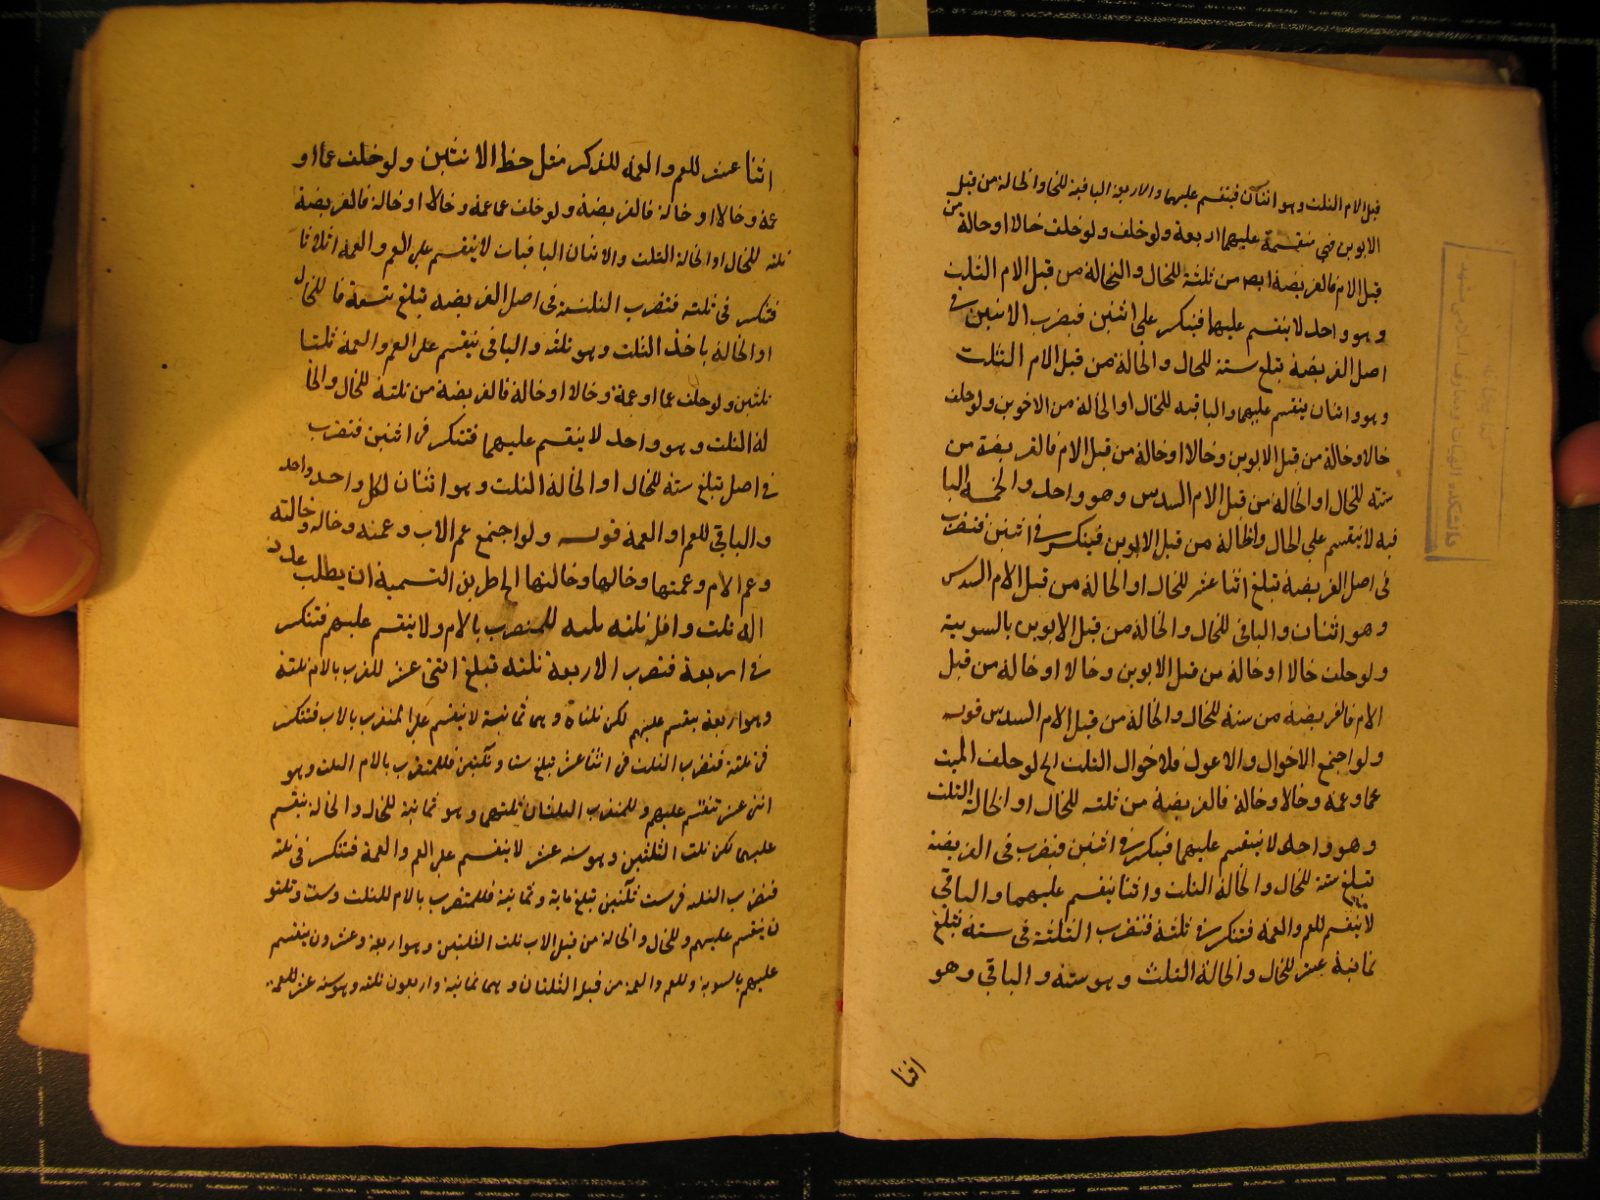 قبل الام الثلث وهو اثنان فينقسم عليهما والاربعة الباقية للخال والخالة من قبل
الابوين فهي منقسمة عليهما اربعة ولو خلف ولو خلف خالا او خالة من
قبل الام فالفريضة ايضا من ثلثة للخال والخالة من قبل الام الثلث
وهو واحد لا ينقسم عليهما فينكر على اثنين فيضرب الاثنين في
اصل الفريضة تبلغ ستة للخال والخالة من قبل الام الثلث
وهو اثنان ينقسم عليهما والباقيه للخال او الخالة من الاخوين ولو خلف
خالا وخالة من قبل الابوين وخالا او خالة من قبل الام فالفريضة من
ستة للخال او الخالة من قبل الام السدس وهو واحد والخمسه البا
قيه لا ينقسم على الخال والخالة من قبل الابوين فينكسر في اثنين فنضرب
في اصل الفريضة تبلغ اثنا عشر للخال او الخالة من قبل الام السدس
وهو اثنان والباقي للخال والخالة من قبل الابوين بالسوية
ولو خلف خالا او خالة من قبل الابوين وخالا او خالة من قبل
الام فالفريضة من ستة للخال والخالة من قبل الام السدس قوله
ولو اجتمع الاخوال والاعمام فلاخوال الثلث الخ لو خلف الميت
عما وعمة وخالا وخالة فالفريضة من ثلثه للخال او الخالة الثلث
وهو واحد لا ينقسم عليهما فينكر في اثنين فنضرب في الفريضة
تبلغ ستة للخال والخالة الثلث واثنا ينقسم عليهما والباقي
لا ينقسم للعم والعمة فتنكر في ثلثة فنضرب الثلثة في ستة تبلغ
ثمانية عشر للخال والخالة الثلث وهو ستة والباقي وهو
اثنا
اثنا عشر للعم والعمة للذكر مثل حظ الانثيين ولو خلف عما او
عمة وخالا او خالة فالفريضة ولو خلف عما عمة وخالا او خالة فالفريضة
ثلثه للخال او الخالة الثلث والاثنان الباقيات لا ينقسم على العم والعمة اثلاثا
فتنكر في ثلثه فنضرب الثلثة في اصل الفريضه تبلغ تسعة فا للخال
او الخالة ياخذ الثلث وهو ثلثه والباقي ينقسم على العم والعمة ثلثا
ثلثين ولو خلف عما او عمة وخالا او خالة فالفريضة من ثلثة للخال والخا
لة الثلث وهو واحد لا ينقسم عليهما فتنكر في اثنين فنضرب
في اصل تبلغ ستة للخال او الخالة الثلث وهو اثنان لكل واحد واحد
والباقي للعم او العمة قوله ولو اجتمع عم الاب وعمته وخاله وخالته
وعم الام وعمتها وخالها وخالتها الخ طريق التسمية ان يطلب عدد
اله ثلث واقل ثلثه ثلثه للمتقرب بالام ولا ينقسم عليهم فتنكر
في اربعة فنضرب الاربعة ثلثه تبلغ اثنى عشر للقرب بالام ثلثة
وهو اربعة ينقسم عليهم لكن ثلثاه وهما ثمانية لا ينقسم على المتقرب بالاب فتنكر
في ثلثة فنضرب الثلث في اثنا عشر تبلغ ستا وثلثين فللمتقرب بالام الثلث وهو
اثنى عشر تنقسم عليهم وللمتقرب الثلثان ثلثهما وهو ثمانية للخال والخالة ينقسم
عليهما لكن ثلث الثلثين وهو سته عشر لا ينقسم على العم والعمة فتنكر في ثلثة
فنضرب الثلثه في ست ثلثين تبلغ ماية وثمانية فللمتقرب بالام للثلث وست وثلثو
ن ينقسم عليهم وللخال والخالة من قبل الاب ثلث الثلثين وهو اربعة وعشرون ينقسم
عليهم بالسوية وللعم والعمة من قبله الثلثان وهما ثمانية واربعون ثلثه وهو سته عشر للعمة